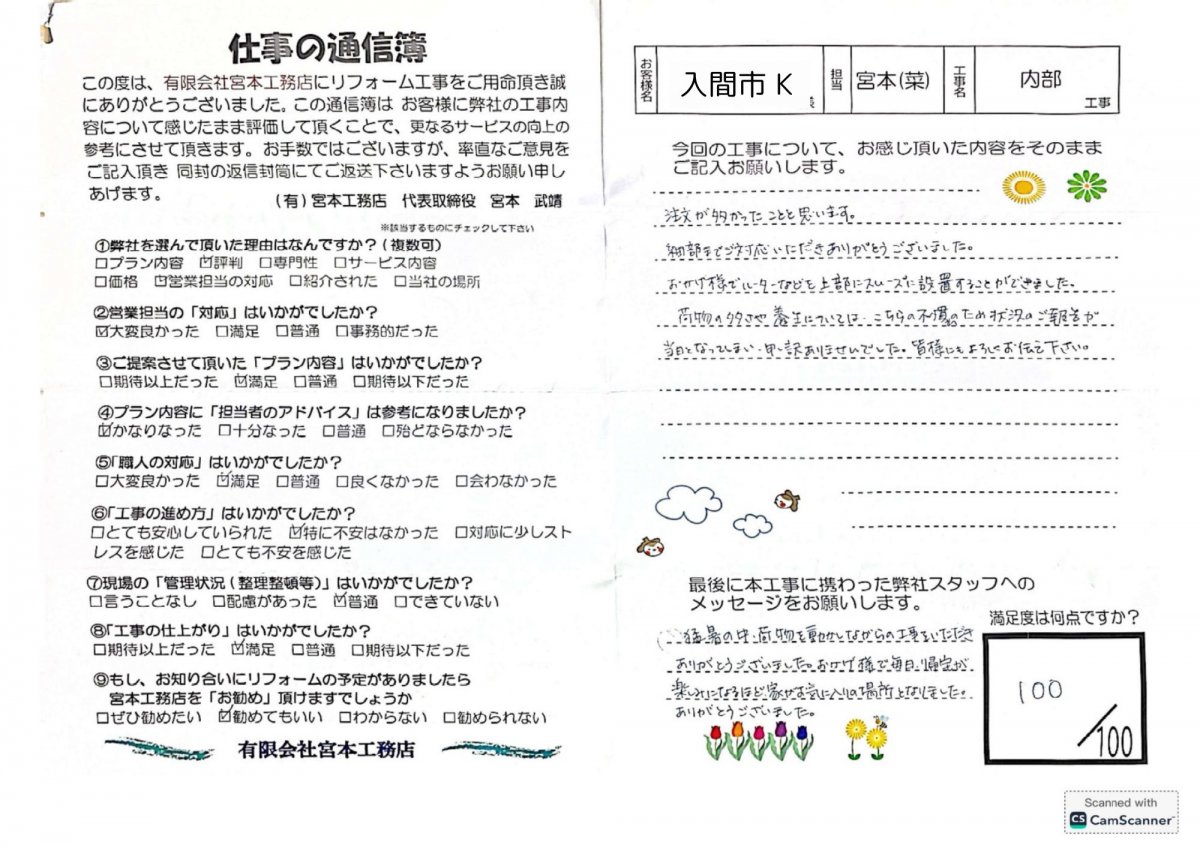 仕事の通信簿
この度は、有限会社宮本工務店にリフォーム工事をご用命頂き誠
にありがとうございました。この通信簿は お客様に弊社の工事内
容について感じたまま評価して頂くことで、更なるサービスの向上の
参考にさせて頂きます。お手数ではございますが、率直なご意見を
ご記入頂き 同封の返信封筒にてご返送下さいますようお願い申し
あげます。
(有)宮本工務店 代表取締役 宮本 武靖
※該当するものにチェックして下さい
①弊社を選んで頂いた理由はなんですか?(複数可)
□プラン内容 ☑評判 □専門性 □サービス内容
□価格 ☑営業担当の対応 □紹介された □当社の場所
②営業担当の「対応」はいかがでしたか?
☑大変良かった □満足 □普通 □事務的だった
③ご提案させて頂いた「プラン内容」はいかがでしたか?
□期待以上だった ☑満足 □普通 □期待以下だった
④プラン内容に「担当者のアドバイス」は参考になりましたか?
☑かなりなった □十分なった □普通 □殆どならなかった
⑤「職人の対応」はいかがでしたか?
□大変良かった ☑満足 □普通 □良くなかった □会わなかった
⑥「工事の進め方」はいかがでしたか?
□とても安心していられた ☑特に不安はなかった □対応に少しスト
レスを感じた □とても不安を感じた
⑦現場の「管理状況(整理整頓等)」はいかがでしたか?
□言うことなし □配慮があった ☑普通 □できていない
⑧「工事の仕上がり」はいかがでしたか?
□期待以上だった ☑満足 □普通 □期待以下だった
⑨もし、お知り合いにリフォームの予定がありましたら
宮本工務店を「お勧め」頂けますでしょうか
□ぜひ勧めたい ☑勧めてもいい □わからない □勧められない
有限会社宮本工務店
お客様名 入間市 K 様 担当 宮本(菜) 工事名 内部 工事
今回の工事について、お感じ頂いた内容をそのまま
ご記入お願いします。
注文が多かったことと思います。
細部までご対応いただきありがとうございました。
おかげ様でルーターなどを上部にスムーズに設置することができました。
荷物の多さや養生については、こちらの不慣れのため状況のご報告が
当日となってしまい申し訳ありませんでした。皆様にもよろしくお伝え下さい。
最後に本工事に携わった弊社スタッフへの
メッセージをお願いします。
猛暑の中、荷物を動かしながらの工事をいただき
ありがとうございました。おかげ様で毎日、帰宅が
楽しみになるほど家がお気に入りの場所となりました。
ありがとうございました。
満足度は何点ですか?
100
/100
Scanned with
CS CamScanner